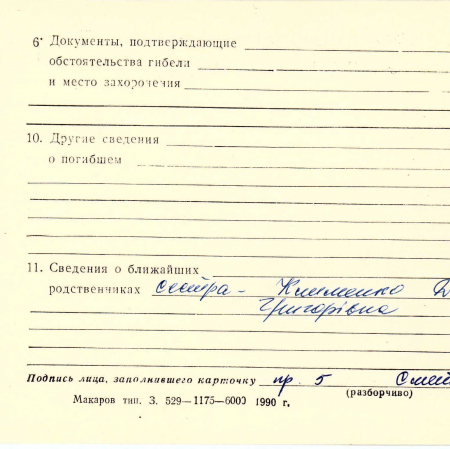 6• Документы, подтверждающие
обстоятельства гибели
и место захоронения
10. Другие сведения
о погибшем
11. Сведения о ближайших
родственниках сестра - Клименко
Григорівна
Подпись лица, заполнившего карточку пр. 5
(разборчиво)
Макаров тип. З. 529—1175—6000 1990 г.